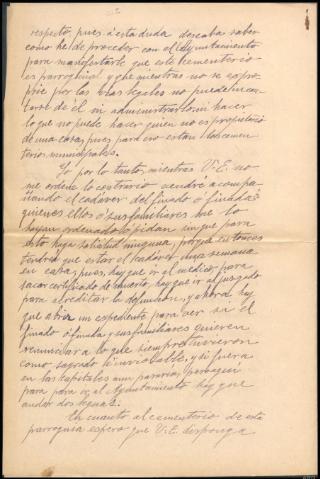 respecto, pues á esta duda deseaba saber
como hé de proceder con el Ayuntamiento
para manifestarle que este Cementerio
es parroquial y que mientras no se expro-
pie por las vias legales no pueden in-
de él ni administrarlo ni hacer
lo que no puede hacer quien no es propietario
de una casa, pues para eso están los cemen-
terios municipales.
Yo por lo tanto, mientras V. E. no
me ordene lo contrario vendré acompa-
ñando el cadáver del finado ó finada
quienes ellos ó sus familiares me lo
hayan ordenado ó lo pidan sin que para
esto haga solicitud ninguna, porque entonces
tendria que estar el cadáver una semana
en casa, pues, hay que ir al médico para
sacar certificado de muerto, hay que ir al juzgado
para acreditar la defunción, y ahora hay
que abrir un expediente para ver si el
finado ó finada y sus familiares quieren
renunciar a lo que siempre tuvieron
como sagrado é inviolable, y si fuera
en las capitales aun pero aqui
para ir al Ayuntamiento hay que
andar dos leguas.
En cuanto al cementerio de esta
parroquia espero que V. E. disponga